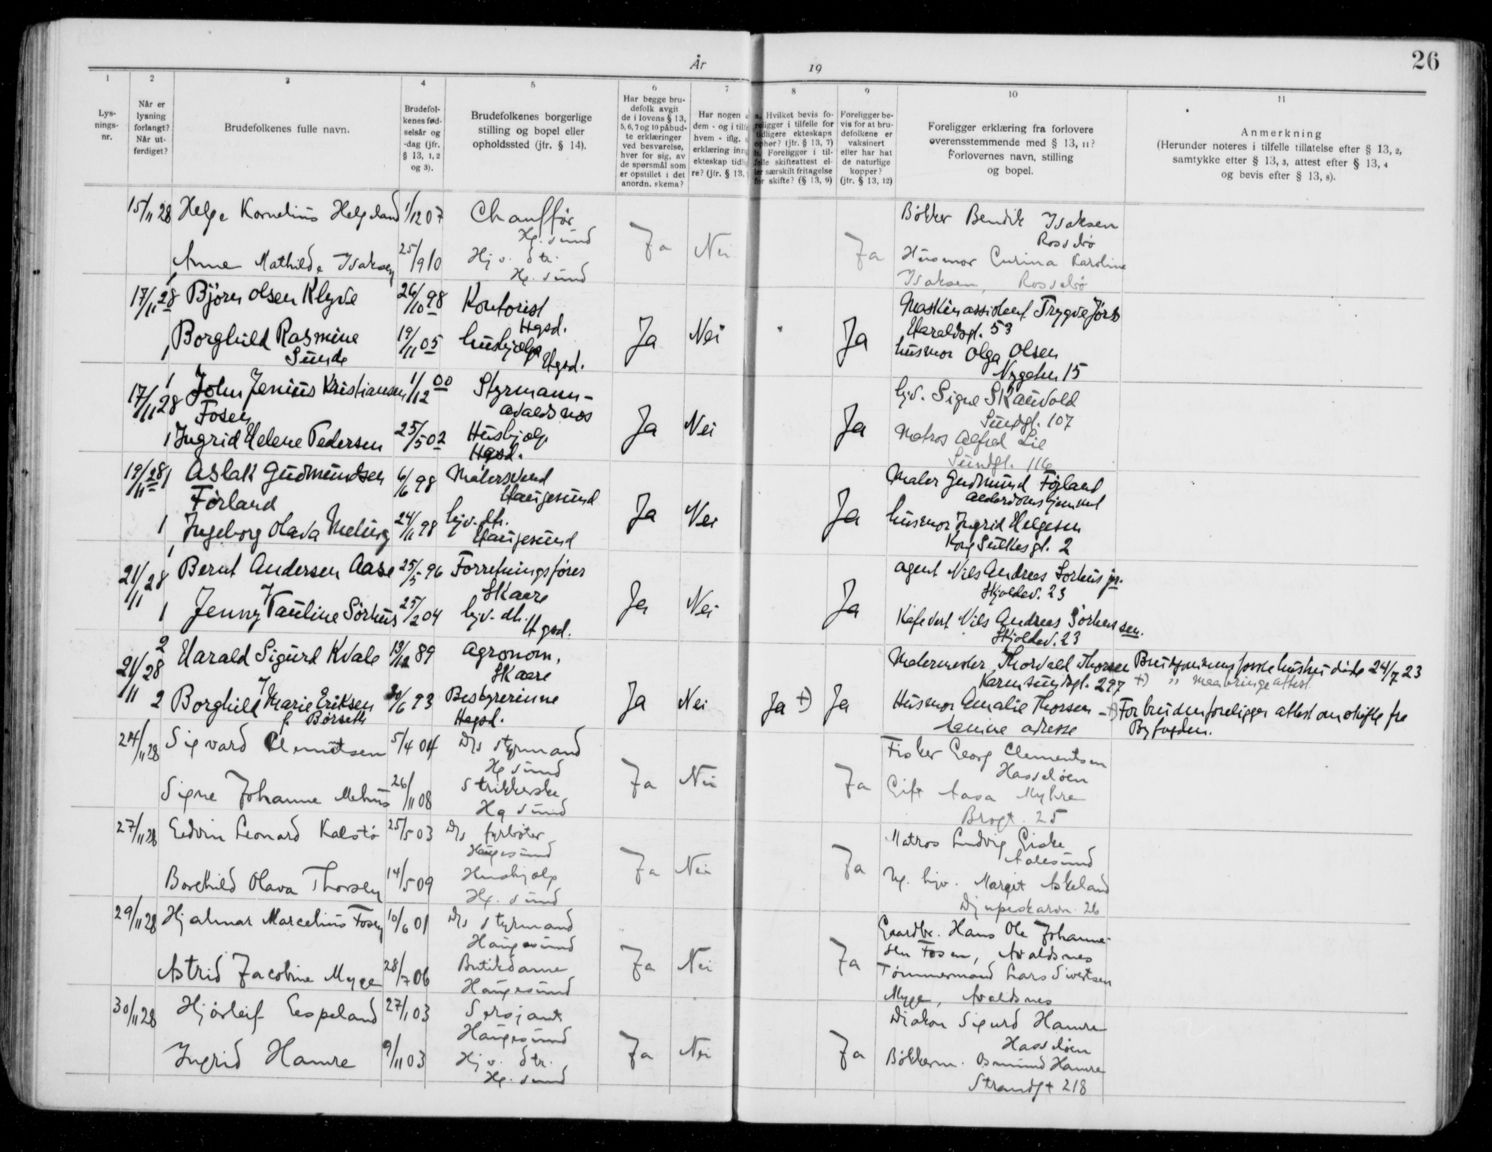 26
År
19
1
2
3
4
5
6
7
8
9
10
11
Lys-
nings-
nr.
Når er
lysning
forlangt?
Når ut-
ferdiget?
Brudefolkenes fulle navn.
Brudefol-
kenes fød-
selsår og
-dag (jfr.
§ 13, 1, 2
og 3).
Brudefolkenes borgerlige
stilling og bopel eller
opholdssted (jfr. § 14).
Har begge bru-
defolk avgit
de i lovens § 13,
5, 6, 7 og 10 påbud-
te erklæringer
ved besvarelse,
hver for sig, av
de spørsmål som
er opstillet i det
anordn. skema?
Har nogen a
dem - og i tilfe
hvem - iflg.
erklæring inng
ekteskap tidlig
re? (jfr. § 13,
Hvilket bevis fo-
religger i tilfelle for
tidligere ekteskaps
ophør? (jfr. § 13, 7)
Foreligger i til-
felle skifteattest el-
ler særskilt fritagelse
for skifte? (§ 13, 9)
Foreligger be-
vis for at bru-
defolkene er
vaksinert
eller har hat
de naturlige
kopper?
(jfr. § 13, 12)
Foreligger erklæring fra forlovere
overensstemmende med § 13, 11?
Forlovernes navn, stilling
og bopel.
Anmerkning
(Herunder noteres i tilfelle tillatelse efter § 13, 2,
samtykke efter § 13, 3, attest efter § 13, 4
og bevis efter § 13, 8).
15/11 28 Helge Kornelius Helgeland 1/12 07 Chauffør
Hg.sund
Anne Mathilde Isaksen 25/9 10 Hjv. dtr.
Hg. sund
Ja Nei Ja
Bøkker Bendik Isaksen
Rossebø
Husmor Karoline
Isaksen, Rossebø
17/11 28 Bjørn Olsen Klyve 26/10 98 Kontorist
Hgsd.
Borghild Rasmine 19/11 05 hushjelp
Sunde Hgsd.
Ja Nei Ja
Maskinassistent Trygve
Haraldsgt. 53
husmor Olga Olsen
Nygaten 15
17/11 28 1 John Jenius Kristiansen 1/12 00 Styrmann-
Fosen Avaldsnes
1 Ingrid Helene Pedersen 25/5 02 Hushjelp
Hgsd.
Ja Nei Ja
hjv. Signe Skauvold
Sundgt. 107
Matros Alfred Lie
Sundgt. 116
19/11 28 1 Aslak Gudmundsen 6/6 98 Malersvend
Førland Haugesund
1 Ingeborg Olava Meling 24/11 98 hjv. dtr.
Haugesund
Ja Nei Ja
Maler Gudmund Førland
alderdomshjemmet
husmor Ingrid Helgesen
Kong Sverresgt. 2
21/11 28 1 Bernt Andersen Aase 25/5 96 Forretningsfører
Skaare
1 Jenny Pauline Sørhus 25/2 04 hjv. dtr.
Hgsd.
Ja Nei Ja
agent Nils Andreas Sørhus jr.
Skjoldev. 23
Kafevert Nils Andreas Sørhus sen.
Skjoldev. 23
21/11 28 2 Harald Sigurd Kvale 13/12 89 Agronom,
Skaare
2 Borghild Marie Eriksen 30/6 93 Bestyrerinne
f. Børseth Hagsd.
Ja Nei Ja +) Ja
Malermester Thorvald Thorsen
Karmsundsgt. 297
Husmor Amalie Thorsen
samme adresse
Brudgommens første hustru døde 24/7 23
+) For bruden foreligger attest om skifte fra
Byfogden.
24/11 28 Sigvard Clemetsen 5/4 04 D/s styrmand
Hg sund
Signe Johanne Mehus 26/11 08 Strikkerske
Hg sund
Ja Nei Ja
Fisker Georg Clementsen
Hasseløen
Gift Aasa Myhre
Brogt. 25
27/11 28 Edvin Leonard Kalstø 25/5 03 D/s fyrbøter
Haugesund
Borghild Olava Thorsen 14/5 09 Hushjelp
Hg. sund
Ja Nei Ja
Matros Ludvig Giske
Aalesund
Ug. hjv. Margit Askeland
29/11 28 Hjalmar Marcelius Fosen 10/6 01 D/s styrmand
Haugesund
Astrid Jacobine Myge 28/7 06 Butikdame
Haugesund
Ja Nei Ja
Gaardbr. Hans Ole Johanne-
sen Fosen, Avaldsnes
Tømmermand Lars Sivertsen
Myge, Avaldsnes
30/11 28 Hjørleif Espeland 27/1 03 Sersjant
Haugesund
Ingrid Hamre 9/11 03 Hjv. dtr.
Hg. sund
Ja Nei Ja
Diakon Sigurd Hamre
Hasseløen
Bøkkerm. Osmund Hamre
Strandgt 218